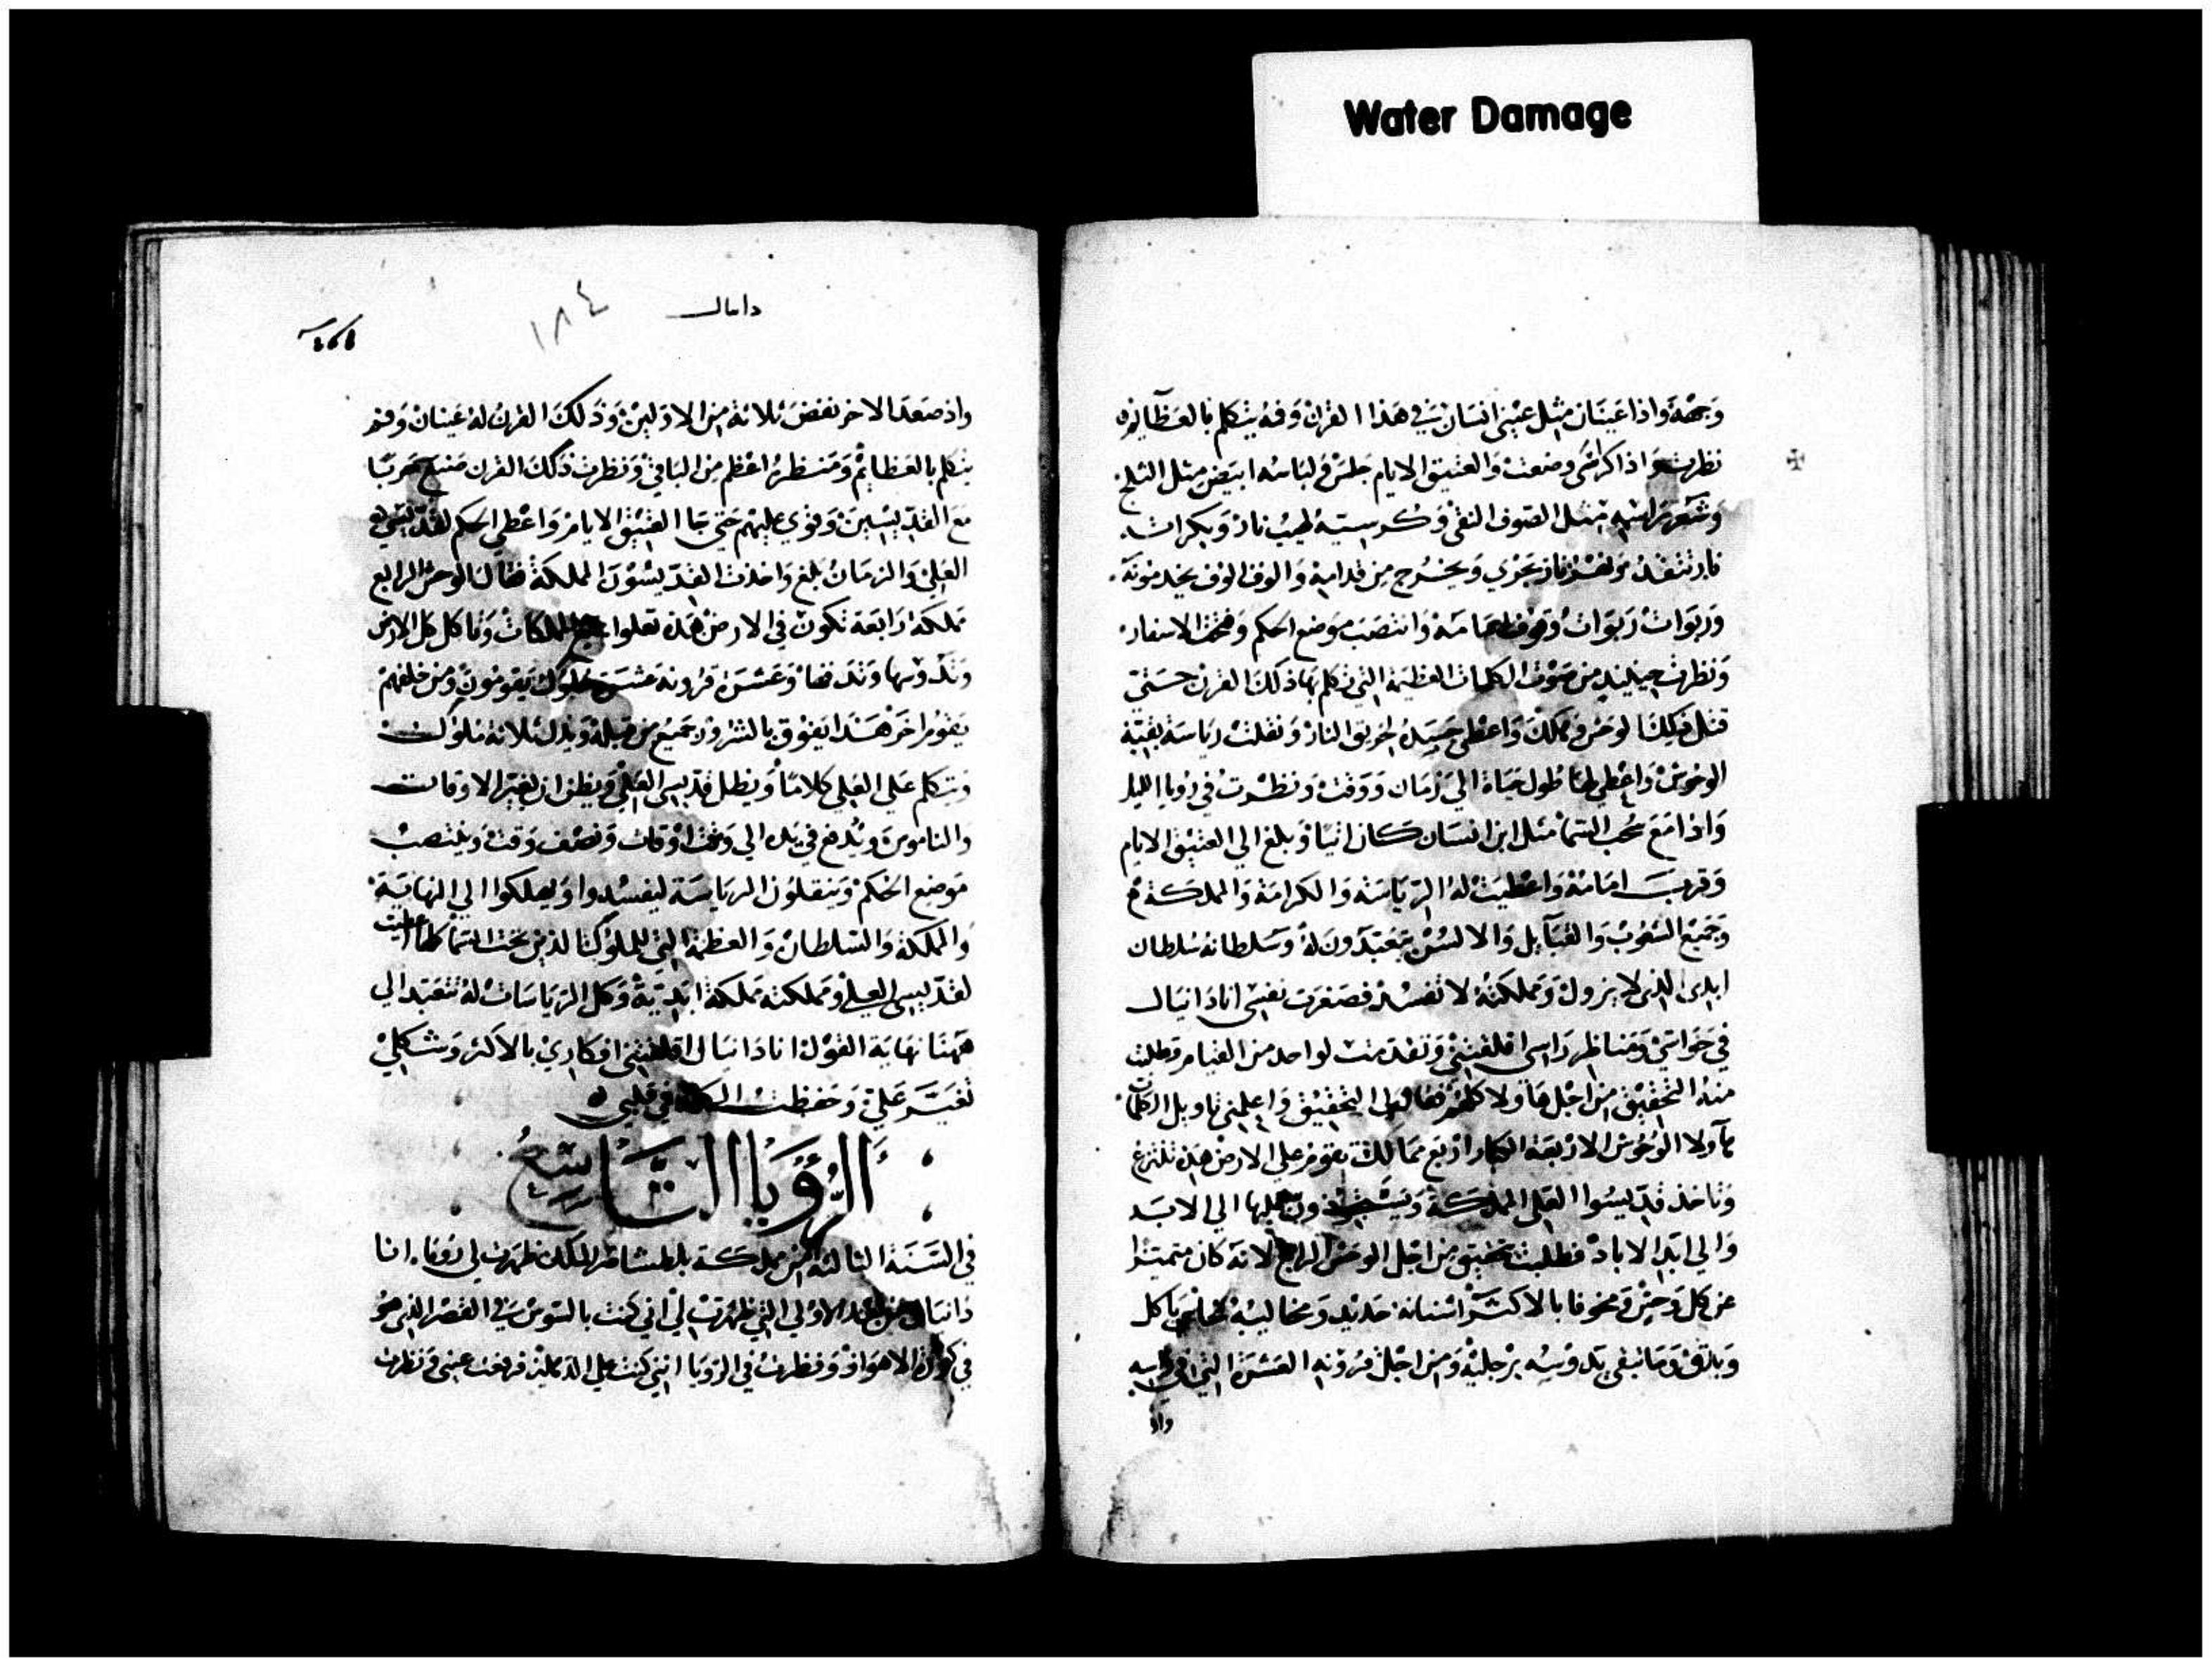 Water Damage
وجهه واذا عينان مثل عيني انسان في هذا القرن وفه يتكلم بالعظايم
نظرت واذا كراسي وضعت والعتيق الايام جلس ولباسه ابيض مثل الثلج
وشعر راسه مثل الصوف النقي وكرسيه لهيب نار وبكراته
نار تتقد ونهر نار يجري ويخرج من قدامه والوف الوف يخدمونه
وربوات ربوات وقوف امامه وانتصب موضع الحكم وفتحت الاسفار
ونظرت حينيذ من صوت الكلمات العظيمة التي تكلم بها ذلك القرن حتي
قتل ذلك الوحش وهلك واعطي جسده لحريق النار ونقلت رياسة بقية
الوحوش واعطي لها طول حياة الي زمان ووقت ونظرت في رويا الليل
واذا مع سحب السما مثل ابن انسان كان اتيا وبلغ الي العتيق الايام
وقرب امامه واعطيت له الرياسة والكرامة والمملكة
وجميع الشعوب والقبايل والالسن يتعبدون له وسلطانه سلطان
ابدي الذي لا يزول ومملكته لا تفسد فصغرت نفسي انا دانيال
في حواسي ومناظر راسي اقلقتني وتقدمت لواحد من القيام وطلبت
منه التحقيق من اجل هاولا كلهم فقال لي التحقيق واعلمني تاويل الكلمات
هاولا الوحوش الاربعة الكبار اربع ممالك تقوم علي الارض هذه تنتزع
وتاخذ قديسوا العلي المملكة ويتخذون عليها الي الابد
والي ابد الاباد فطلبت تحقيق من اجل الوحش الرابع لانه كان متميزا
عن كل وحش ومخوفا بالاكثر اسنانه حديد ومخاليبه نحاس ياكل
ويدقق وما تبقي يدوسه برجليه ومن اجل قرونه العشرة التي في راسه
واذ
دانيال
١٨٤
واذ صعد الاخر نفض ثلاثة من الاولين وذلك القرن له عينان وفم
يتكلم بالعظايم ومنظره اعظم من الباقي ونظرت ذلك القرن صنع حربا
مع القديسين وقوي عليهم حتي جا العتيق الايام واعطي الحكم لقديسي
العلي والزمان بلغ واخذت القديسون المملكة فقال الوحش الرابع
مملكة رابعة تكون في الارض هذه تعلوا جميع الملكات وتاكل كل الارض
وتدوسها وتدقها وعشرة قرونه عشرة ملوك يقومون ومن خلفهم
يقوم اخر هذا يفوق بالشرور جميع من قبله ويذل ثلاثة ملوك
ويتكلم علي العلي كلاما ويطل قديسي العلي ويظن ان يغير الاوقات
والناموس ويدفع في يده الي وقت اوقات ونصف وقت وينتصب
موضع الحكم وينقلون الرياسة ليفسدوا ويهلكوا الي النهاية
والمملكة والسلطان والعظمة التي للملوك الذين تحت السما كلها اعطيت
لقديسي العلي ومملكته مملكة ابدية وكل الرياسات له تتعبد الي
ههنا نهاية القول انا دانيال اقلقتني افكاري بالاكثر وشكلي
تغير علي وحفظت الكلمة في قلبي
الرويا التاسع
في السنة الثالثة من مملكة بلطشاصر الملك ظهرت لي رويا انا
دانيال من بعد الاولي التي ظهرت لي اني كنت بالسوس في القصر الذي هو
في كورة الاهواز ونظرت في الرويا انني كنت علي فرفعت عيني ونظرت